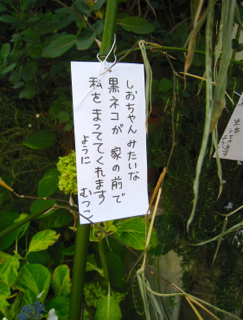 しおちゃん みたいな
黒ネコが 家の前で
私を まっててくれます
ように むつこ